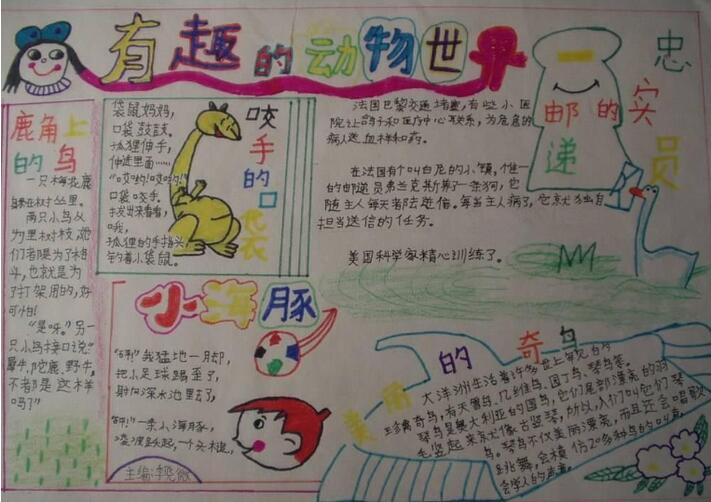 有趣的动物世界
鹿角上
的鸟
一只梅花鹿
身躲在树丛里。
两只小鸟从
为里树枝,她
们者是为了格
斗,也就是为
了打架用的,好
可怕!
"是呀。"另一
只小鸟接口说:"
犀牛、陀鹿、野牛,
不都是这样
吗?"
袋鼠妈妈,
口袋鼓鼓。
狐狸伸手,
伸进里面……
"哎哟!哎哟哟!"
口袋咬手。
拔出来看看,
哦,
狐狸的手指头,
钓着小袋鼠。
咬手的口袋
法国巴黎交通堵塞,有些小医
院让鸽子和医疗中心联系,为危急的
病人送血样和药。
在法国有个叫白尼的小镇,惟一
的邮递员弗兰克斯养了一条狗,也
随主人每天者陆送信。每当主人病了,它就独自
担当送信的任务。
美国科学家精心训练了。
忠实的邮递员
小海豚
我猛地一脚,
把小足球踢歪了,
射向深水池里去了,
一条小海豚,
一个头槌,
主编:李晓微
美丽的奇鸟
大洋洲生活着许多世上罕见的
珍禽奇鸟,有天鹅鸟、几维鸟、园丁鸟、琴鸟等。
琴鸟是澳大利亚的国鸟,他们尾部漂亮的羽
毛竖起来亦像古竖琴,所以,人们叫它们琴
鸟。琴鸟不仅美丽漂亮,而且还会唱歌
跳舞,会模仿20多种鸟的叫声,
会学人的声音。